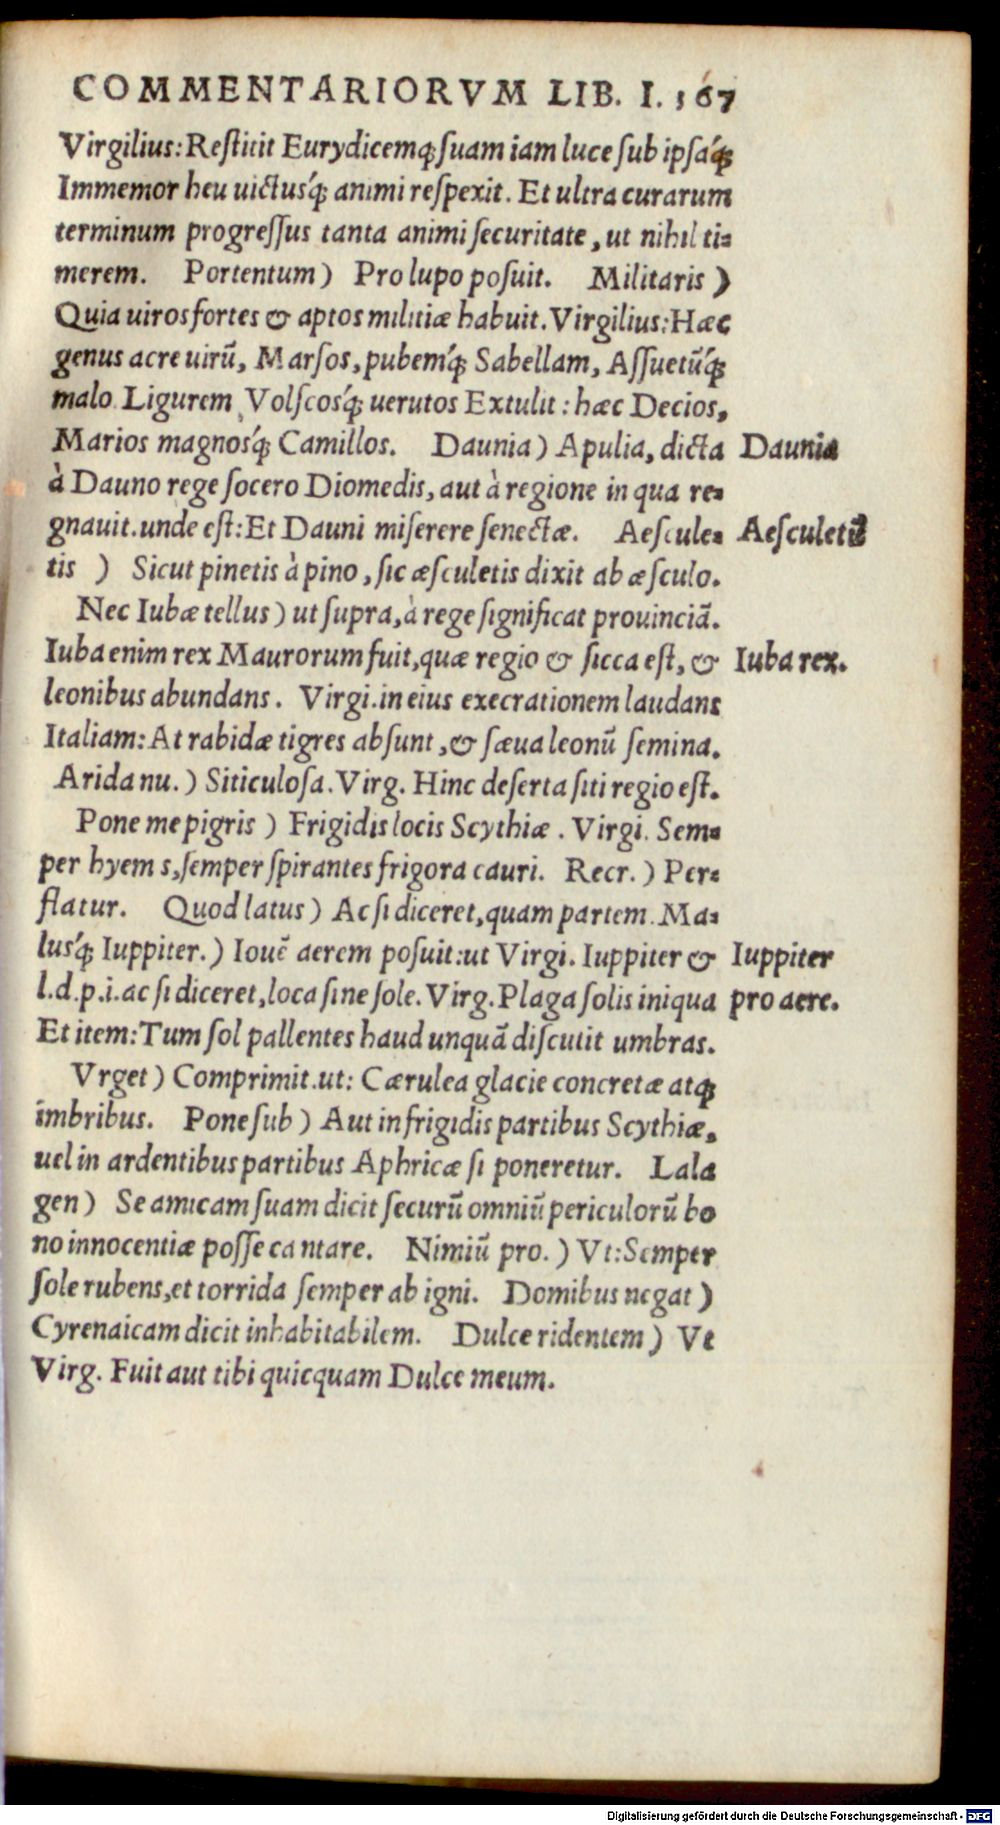 COMMENTARIORVM LIB. I. 167
Virgilius: Reſtitit Eurydicemq́ꝫ ſuam iam luce ſub ipſáqꝫ
Immemor heu uictusq́ꝫ animi reſpexit. Et ultra curarum
terminum progreſſus tanta animi ſecuritate, ut nihil ti=
merem. Portentum) Pro lupo poſuit. Militaris)
Quia uiros fortes & aptos militiæ habuit. Virgilius: Hæc
genus acre uirũ, Marſos, pubemq́ꝫ Sabellam, Aſſuetũq́ꝫ
malo Ligurem Volſcosq́ꝫ uerutos Extulit: hæc Decios,
Marios magnosq́ꝫ Camillos. Daunia) Apulia, dicta
Daunia
à Dauno rege ſocero Diomedis, aut à regione in qua re=
gnauit. unde eſt: Et Dauni miſerere ſenectæ. Aeſcule=
Aeſculetũ
tis ) Sicut pinetis à pino, ſic æſculetis dixit ab æſculo.
Nec Iubæ tellus) ut ſupra, à rege ſignificat prouinciã.
Iuba enim rex Maurorum fuit, quæ regio & ſicca eſt, &
Iuba rex.
leonibus abundans. Virgi. in eius execrationem laudans
Italiam: At rabidæ tigres abſunt, & ſæua leonũ ſemina.
Arida nu.) Siticuloſa. Virg. Hinc deſerta ſiti regio eſt.
Pone me pigris) Frigidis locis Scythiæ. Virgi. Sem=
per hyem s, ſemper ſpirantes frigora cauri. Recr.) Per=
flatur. Quod latus) Ac ſi diceret, quam partem. Ma=
lusq́ꝫ Iuppiter.) Iouẽ aerem poſuit: ut Virgi. Iuppiter &
Iuppiter
l.d.p.i. ac ſi diceret, loca ſine ſole. Virg. Plaga ſolis iniqua
pro aere.
Et item: Tum ſol pallentes haud unquã diſcutit umbras.
Vrget) Comprimit. ut: Cærulea glacie concretæ atqꝫ
imbribus. Pone ſub) Aut in frigidis partibus Scythiæ,
uel in ardentibus partibus Aphricæ ſi poneretur. Lala
gen) Se amicam ſuam dicit ſecurũ omniũ periculorũ bo
no innocentiæ poſſe cantare. Nimiũ pro.) Vt: Semper
ſole rubens, et torrida ſemper ab igni. Domibus negat)
Cyrenaicam dicit inhabitabilem. Dulce ridentem) Vt
Virg. Fuit aut tibi quicquam Dulce meum.
Digitalisierung gefördert durch die Deutsche Forschungsgemeinschaft - DFG